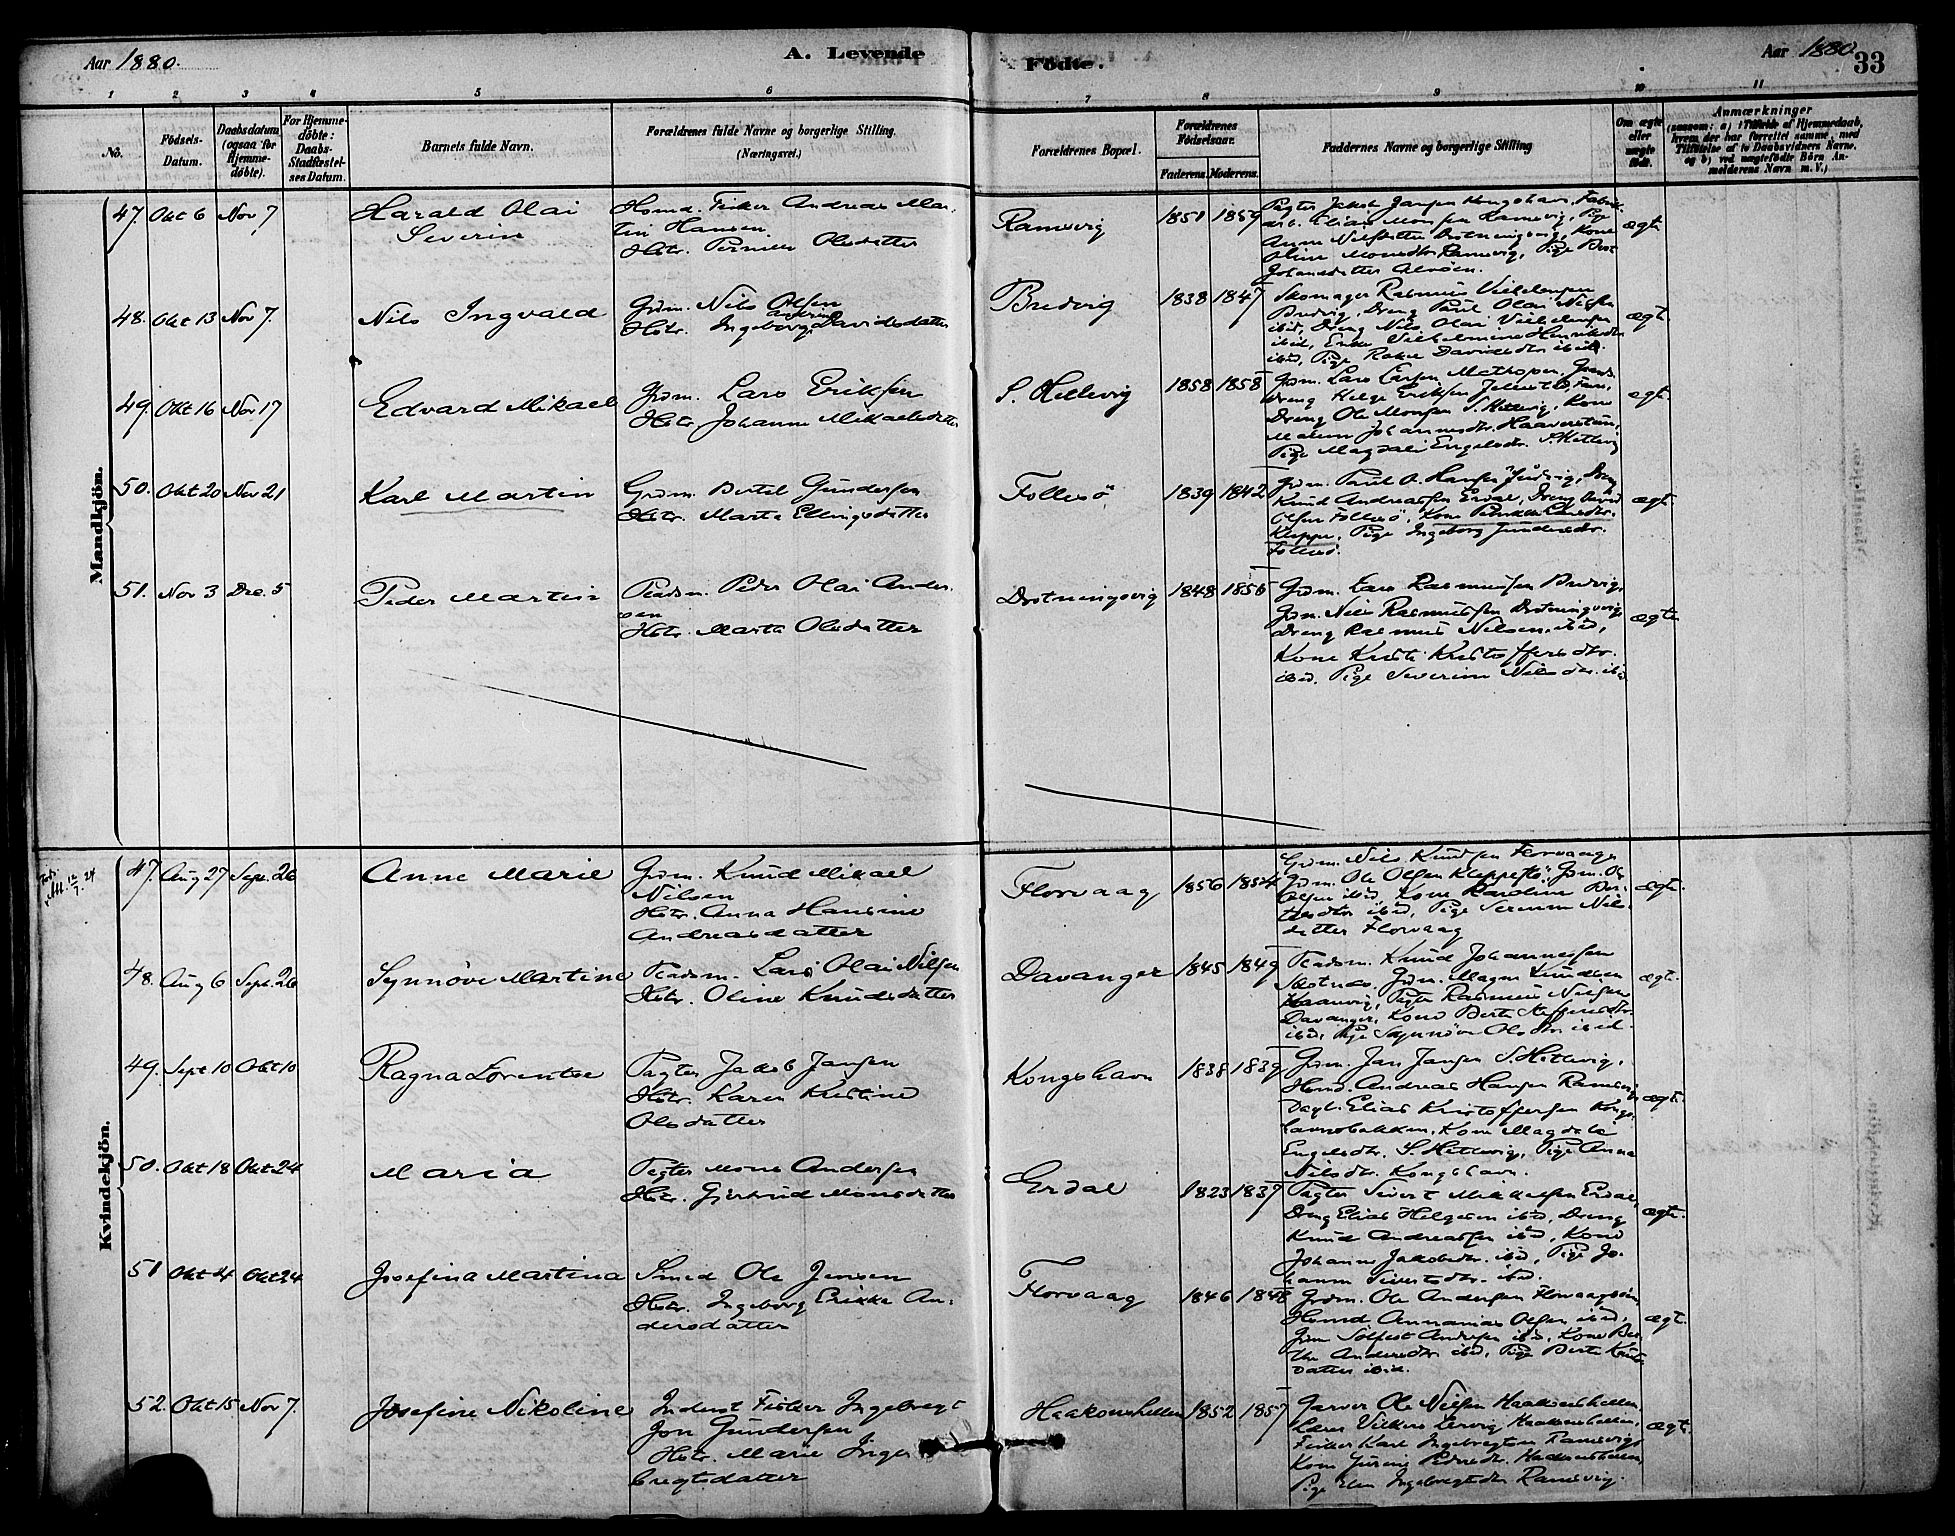 Aar 1880.
A. Levende
Födte.
Aar 1880.
33
1 2 3 4 5 6 7 8 9 10 11
No.
Födsels-
Datum.
Daabsdatum
(ogsaa for
Hjemme-
döbte).
For Hjemme-
döbte:
Daabs-
Stadfæstel-
ses Datum.
Barnets fulde Navn.
Forældrenes fulde Navne og borgerlige Stilling.
(Næringsvei.)
Forældrenes Bopæl.
Forældrenes
Födselsaar.
Faderens. Moderens.
Faddernes Navne og borgerlige Stilling
Om ægte
eller
uægte
födt.
Anmærkninger
(saasom: a) i Tilfælde af Hjemmedaab,
hvem der har forrettet samme, med
Tilföielse af to Daabsvidners Navne,
og b) ved uægtefödte Börn An-
melderens Navn m. V.)
Mandkjön.
47. Okt 6 Nov 7
Harald Olai
Severin
Husmd. Fisker Andreas Mar-
tin Hansen
Hstr. Pernille Olsdatter
Ramsvig
1851 1859
Pagter Jakob Jansen Kongshavn, Fabrik-
arb. Elias Monsen Ramsvig, Pige
Anne Nilsdatter Drotningsvig, Kone
Oline Monsdtr Ramsvig, Pige Berte
Johannesdatter Alvöen.
ægte
48. Okt 13 Nov 7.
Nils Ingvald
Grdm. Nils Olsen
Hstr. Ingeborg Davidsdatter
Bredvig
1838 1847
Skomager Rasmus Vilhelmsen
Bredvig, Dreng Paul Olai Nilsen
ibid, Dreng Nils Olai Vilhelmsen
ibid, Enke Vilhelmine Henriksdtr
ibid, Pige Rakel Davidsdtr ibid.
ægte
49. Okt 16 Nov 17
Edvard Mikael
Grdm. Lars Eriksen
Hstr. Johanne Mikaelsdatter
S. Hetlevig
1858 1858
Grdm. Lars Larsen Mathopen,
Dreng Helge Eriksen
Dreng Ole Monsen S. Hetlevig, Kone
Malene Johannesdtr. Haaverstun,
Pige Magdali Engelsdtr. S. Hetlevig
ægte.
50. Okt 20 Nov 21
Karl Martin
Grdm. Bertel Gundersen
Hstr. Marta Ellingsdatter
Follesö
1839 1842
Grdm. Paul O. Hansen Juvig, Dreng
Knud Andreassen Erdal, Dreng
Olsen Follesö, Kone
Kleppe, Pige Ingeborg Gundersdtr.
Follesö.
ægte.
51. Nov 3 Dec. 5
Peder Martin
Pladsm. Peder Olai Ander-
sen
Hstr. Marta Olsdatter
Drotningsvig
1848 1856
Grdm. Lars Rasmussen Bredvig,
Grdm. Nils Rasmussen Drotningsvig,
Dreng Rasmus Nilsen ibid,
Kone Kristi Kristoffersdtr.
ibid. Pige Severine Nilsdtr. ibid
ægte
Kvindekjön.
Att. 12/7. 24
47. Aug 27 Sept. 26
Anne Marie
Grdm. Knud Mikael
Nilsen
Hstr. Anna Hansine
Andreasdatter
Florvaag
1856 1854
Grdm. Nils Knudsen Florvaag,
Grdm. Ole Olsen Kleppestö, Grdm. Ole
Olsen ibid, Kone Karoline Ber-
telsdtr ibid, Pige Severine Nils-
datter Florvaag
ægte.
48. Aug 6 Sept. 26
Synnöve Martine
Pladsm. Lars Olai Nilsen
Hstr. Oline Knudsdatter
Davanger
1845 1849
Pladsm. Knud Johannessen
Skotnes. Grdm. Magne Knudsen
Haanevig, Pagter Rasmus Nilsen
Davanger, Kone Berte Steffensdtr
ibid, Pige Synnöve Olsdtr ibid.
ægte.
49. Sept 10 Okt 10
Ragna Lorentse
Pagter Jakob Jansen
Hstr. Karen Kristine
Olsdatter
Kongshavn
1838 1839
Grdm. Jan Jansen S. Hetlevig,
Husmd. Andreas Hansen Ramsvig
Dagl. Elias Kristoffersen Kongs-
havnsbakken. Kone Magdali
Engelsdtr. S. Hetlevig, Pige Anna
Nilsdtr. Kongshavn.
ægte.
50. Okt 18 Okt 24
Maria
Pagter Mons Andersen
Hstr. Gjertrud Monsdatter
Erdal
1823 1837
Pagter Sivert Mikkelsen Erdal,
Dreng Elias Helgesen ibid, Dreng
Knud Andreassen ibid, Kone
Johanne Jakobsdtr. ibid, Pige Jo-
hanne Sivertsdtr. ibid.
ægte.
51 Okt 4 Okt 24
Josefina Martina
Smed Ole Jensen
Hstr. Ingeborg Erikke An-
dersdatter
Florvaag
1846 1848
Grdm. Ole Andersen Florvaagöen,
Husmd Annanias Olsen ibid,
Grdm Solfest Andersen ibid, Kone Ber-
the Andersdtr ibid, Pige Berte Knuds-
datter ibid.
ægte.
52. Okt 15 Nov 7.
Josefine Nikoline
Inderst Fisker Ingebregt
Jon Gundersen
Hstr. Marie Inge-
bregtsdatter
Haakonshellen
1852 1857
Garver Ole Nilsen Haakonshellen,
Lærer Vilhem Lervig Haakonshellen,
Fisker Karl Ingebregtsen Ramsvig,
Kone Gurine Pedersdtr. Haakonshellen,
Pige Elen Ingebregtsdtr Ramsvig.
ægte.